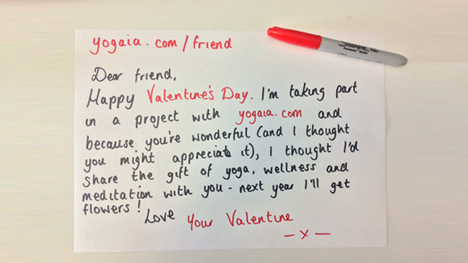 yogaia.com/friend
Dear friend,
Happy Valentine's Day. I'm taking part
in a project with yogaia.com and
because you're wonderful (and I thought
you might appreciate it), I thought I'd
share the gift of yoga, wellness and
meditation with you - next year I'll get
flowers!
Love Your Valentine
- x -
Sharpie